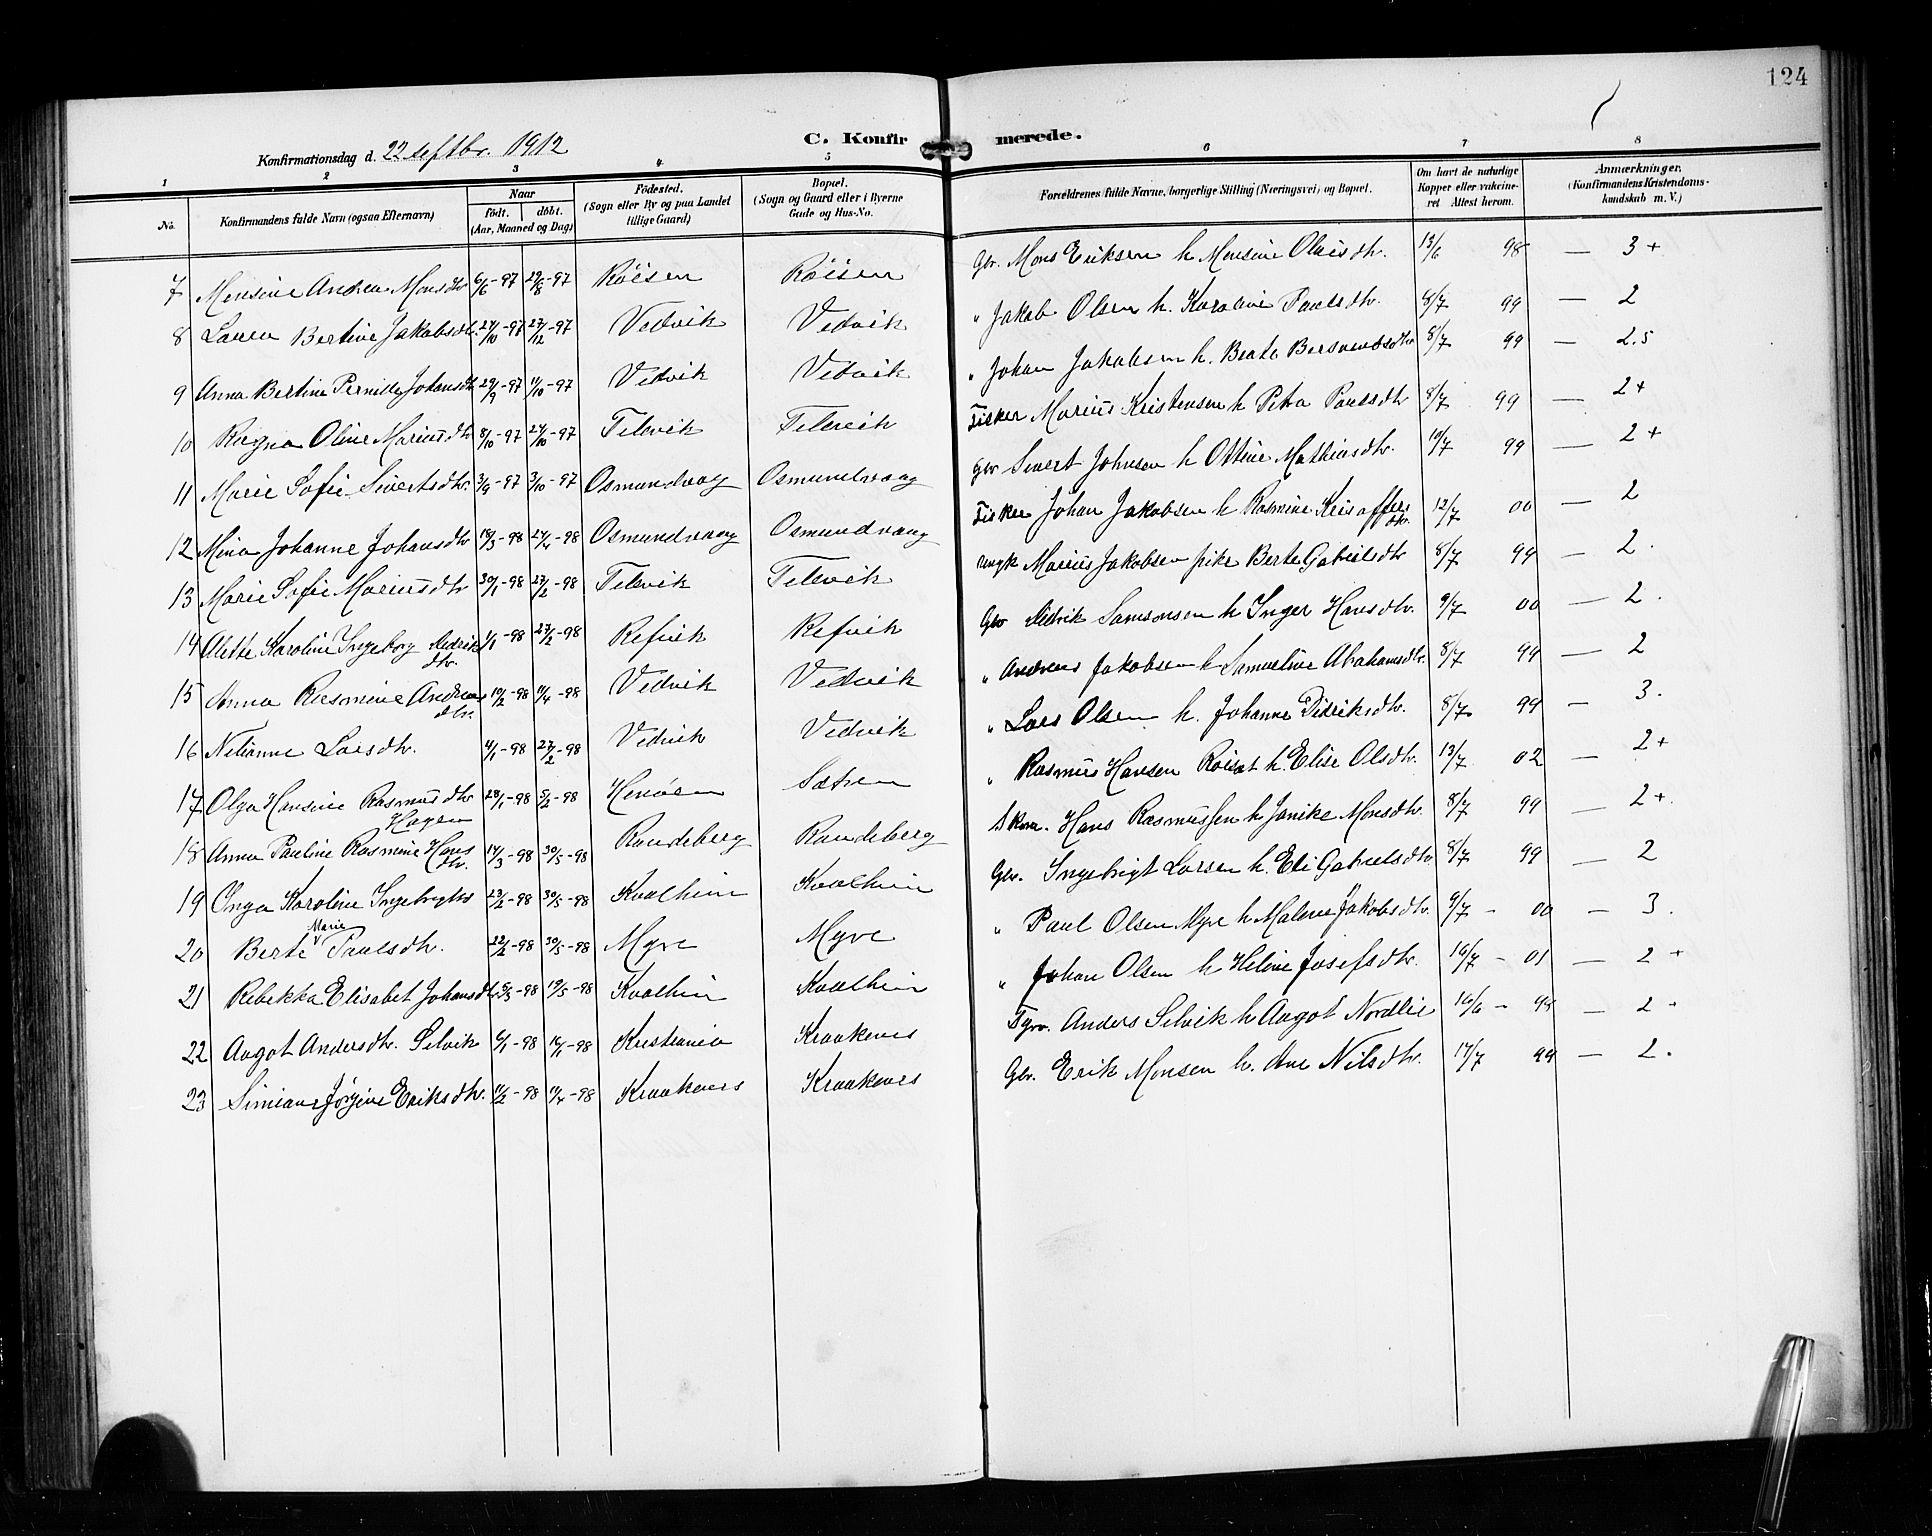 124
C. Konfirmerede.
Konfirmationsdag d. 22 septbr. 1912
1 2 3 4 5 6 7 8
No. Konfirmandens fulde Navn (ogsaa Efternavn) Naar født. døbt. (Aar, Maaned og Dag) Fødested. (Sogn eller By og paa Landet tillige Gaard) Bopæl. (Sogn og Gaard eller i Byerne Gade og Hus-No. Forældrenes fulde Navne, borgerlige Stilling (Næringsvei) og Bopæl. Om havt de naturlige Kopper eller vakcineret Attest herom. Anmærkninger. (Konfirmandens Kristendomskundskab m. V.)
7 Monsine Andrea Monsdtr 6/6-97 29/8-97 Röisen Röisen Gbr. Mons Eriksen h Monsine Olaisdtr. 13/6 98 — 3+
8 Laura Bertine Jakobsdtr. 24/10-97 27/12-97 Vedvik Vedvik " Jakob Olsen h. Karoline Paulsdtr. 8/7 99 — 2
9 Anna Bertine Pernille Johansdtr 29/9-97 11/10-97 Vedvik Vedvik " Johan Jakobsen h. Beate 8/7 99 — 2.5
10 Ragna Oline Mariusdtr 8/10-97 24/10-97 Televik Televik Fisker Marius Kristensen h Petra Paulsdtr 8/7 99 — 2+
11 Marie Sofie Sivertsdtr. 3/9-97 3/10-97 Osmundvaag Osmundvaag Gbr Sivert Johnsen h Ottine Mathiasdtr. 10/7 99 — 2+
12 Mina Johanne Johansdtr 18/3-98 24/4-98 Osmundvaag Osmundvaag Fisker Johan Jakobsen h Rasmine Kristoffersdtr. 12/7 00 — 2
13 Marie Sofie Mariusdtr 30/1-98 27/2-98 Televik Televik ungk Marius Jakobsen pike Berte Gabrielsdtr 8/7 99 — 2.
14 Alette Karoline Ingeborg Didriksdtr. 1/1-98 27/2-98 Refvik Refvik Gbr Didrik Samsonsen h Inger Hansdtr. 9/7 00 — 2.
15 Anna Rasmine Andreasdtr. 10/2-98 11/4-98 Vedvik Vedvik " Andreas Jakobsen h Samueline Abrahamsdtr. 8/7 99 — 2
16 Nilianne Larsdtr. 4/1-98 27/2-98 Vedvik Vedvik " Lars Olsen h. Johanne Didriksdtr. 8/7 99 — 3.
17 Olga Hansine Rasmusdtr 28/1-98 5/2-98 Henöen Sætren " Rasmus Hansen Röiset h. Elise Olsdtr. 13/7 02 — 2+
18 Anna Pauline Rasmine Hansdtr. Hagen 14/3-98 30/5-98 Raudeberg Raudeberg Skom. Hans Rasmussen h Janike Monsdtr. 8/7 99 — 2+.
19 Inga Karoline Ingebrigtsd 23/2-98 30/5-98 Kvalheim Kvalheim Gbr. Ingebrigt Larsen h. Eli Gabrielsdtr 8/7 99 — 2
20 Berte Marie Paulsdtr. 22/2-98 30/5-98 Myre Myre " Paul Olsen Myre h Malene Jakobsdtr. 9/7 - 00 — 3.
21 Rebekka Elisabet Johansdtr. 5/3-98 19/5-98 Kvalheim Kvalheim " Johan Olsen h Heline Josefsdtr. 16/7 - 01 — 2+
22 Aagot Andersdtr. Silvik 6/1-98 16/1-98 Kristiania Kraakenes Fyrv. Anders Silvik h Aagot Nordlie 16/6 - 98 — 2-
23 Simiane Jørgine Eriksdtr. 11/2-98 11/4-98 Kraakenes Kraakenes Gbr. Erik Monsen h. Ane Nilsdtr. 17/7 99 — 2.